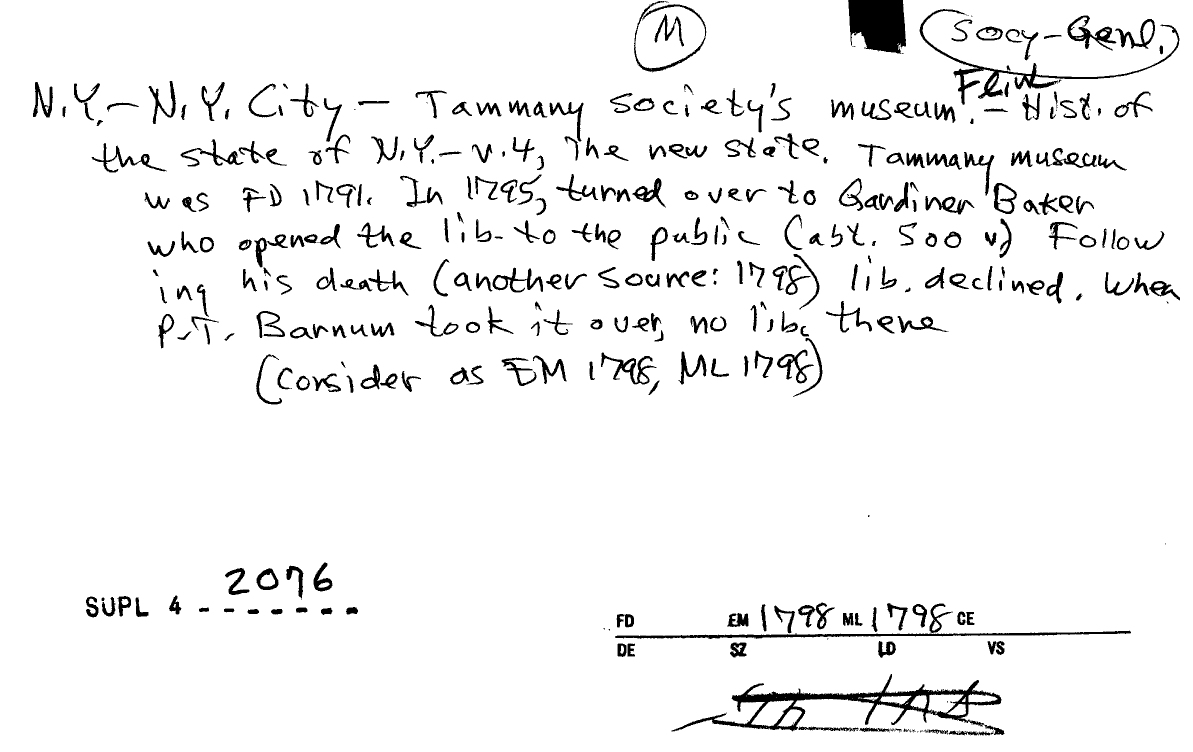 M
Socy-Genl.
Flint
N.Y.- N.Y. City - Tammany society's museum. - Hist. of
the state of N.Y.- v.4, The new state. Tammany museum
was FD 1791. In 1795, turned over to Gardiner Baker
who opened the lib. to the public (abt. 500 v) Follow
ing his death (another source: 1798) lib. declined. When
P.T. Barnum took it over, no lib. there
(Consider as EM 1798, ML 1798)
SUPL 4 - 2076
FD EM 1798 ML 1798 CE
DE SZ LD VS